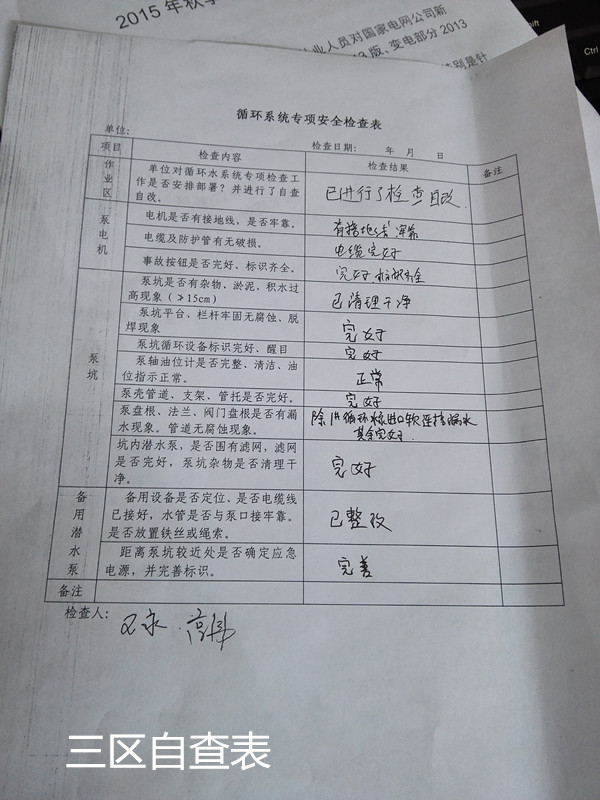 2015年秋季
业人员对国家电网公司新
版、变电部分2013
特别是针
Ctrl
循环系统专项安全检查表
单位：
检查日期： 年 月 日
项目 检查内容 检查结果 备注
作业区
单位对循环水系统专项检查工
作是否安排部署？并进行了自查
自改。
已进行了检查自改.
泵电机
电机是否有接地线，是否牢靠。
有接地线 牢靠
电缆及防护管有无破损。
电缆完好
事故按钮是否完好、标识齐全。
完好 标识齐全
泵坑
泵坑是否有杂物、淤泥，积水过
高现象（≥15cm）
已清理干净
泵坑平台、栏杆牢固无腐蚀、脱
焊现象
完好
泵坑循环设备标识完好、醒目
完好
泵轴油位计是否完整、清洁、油
位指示正常。
正常
泵壳管道、支架、管托是否完好。
完好
泵盘根、法兰、阀门盘根是否有漏
水现象。管道无腐蚀现象。
循环 出口软连接漏水
其余完好.
坑内潜水泵，是否围有滤网，滤网
是否完好，泵坑杂物是否清理干
净。
完好
备用潜水泵
备用设备是否定位、是否电缆线
已接好，水管是否与泵口接牢靠。
是否放置铁丝或绳索。
已整改
距离泵坑较近处是否确定应急
电源，并完善标识。
完善
备注
检查人：
三区自查表